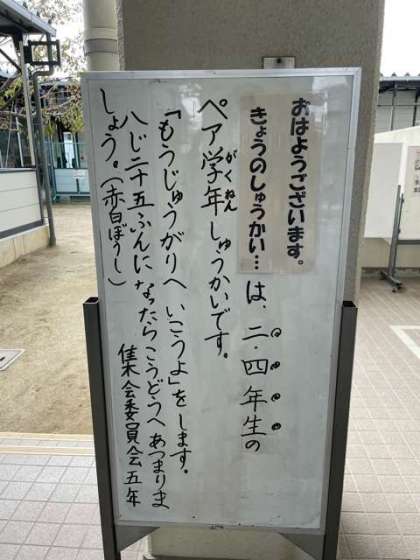 おはようございます。
きょうのしゅうかい…は、二・四年生の
ペア学年しゅうかいです。
がくねん
「もうじゅうがりへいこうよ」をします。
八じ二十五ふんになったらこうどうへあつまりま
しょう。(赤白ぼうし)
集会委員会五年